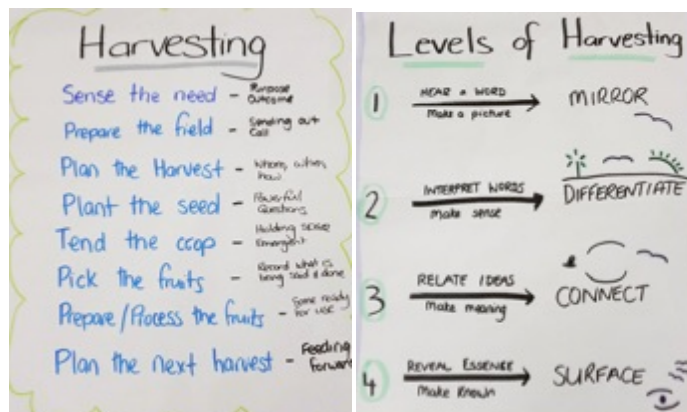 Harvesting
Sense the need - Purpose
Outcome
Prepare the field - Sending out
Call
Plan the Harvest - Whom, when,
how
Plant the seed - Powerful
Questions
Tend the crop - Holding space
Emergent
Pick the fruits - Record what is
being said & done
Prepare/Process the fruits - Some ready
for use
Plan the next harvest - Feeding
forward
Levels of Harvesting
1 HEAR a WORD
Make a picture
MIRROR
2 INTERPRET WORDS
Make sense
DIFFERENTIATE
3 RELATE IDEAS
Make meaning
CONNECT
4 REVEAL ESSENCE
Make Known
SURFACE